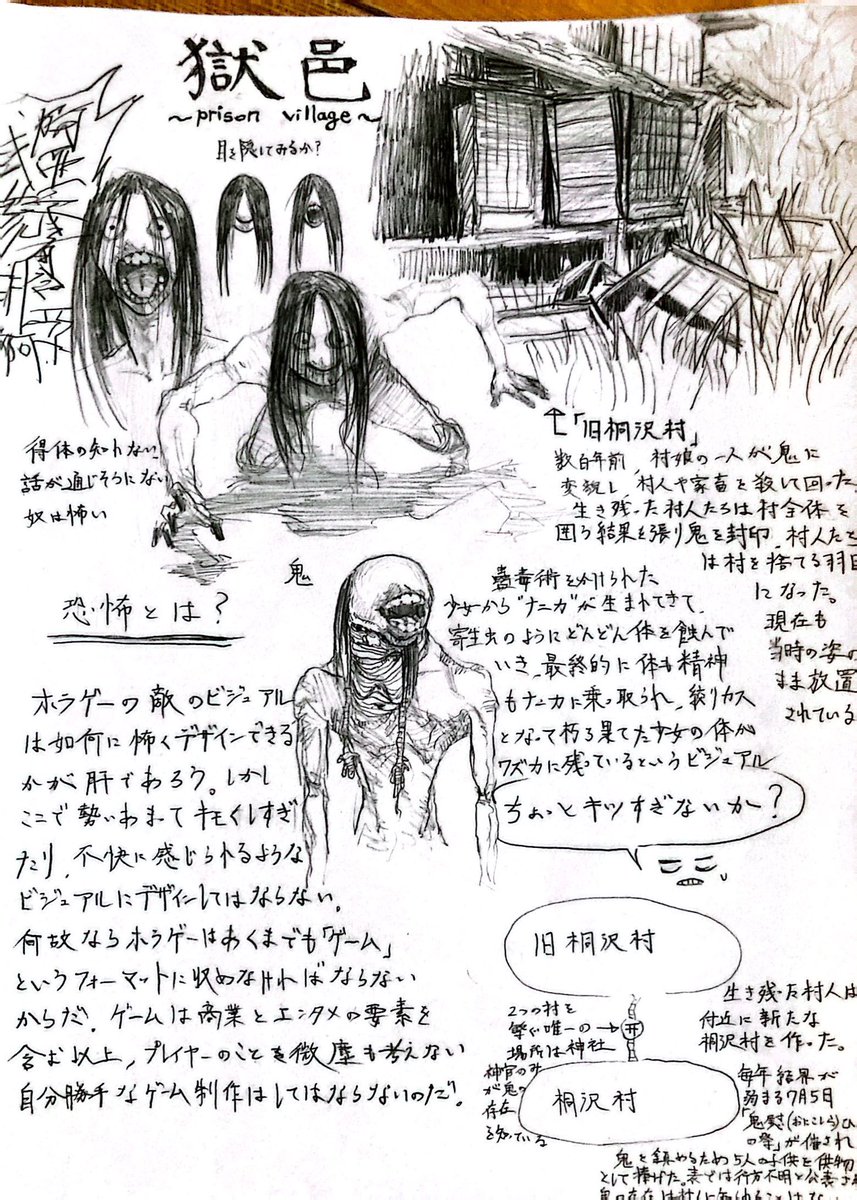 獄邑
～prison village～
目を隠してみるか？
得体の知れない
話が通じそうにない
奴は怖い
↑「旧桐沢村」
数百年前、村娘の一人が鬼に
変貌し、村人や家畜を殺して回った。
生き残った村人たちは村全体を
囲う結果を張り鬼を封印、村人たち
は村を捨てる羽目
になった。
現在も
当時の姿の
まま放置
されている
鬼
蠱毒術をかけられた
少女から"ナニカ"が生まれてきて、
寄生虫のようにどんどん体を蝕んで
いき、最終的に体も精神
もナニカに乗っ取られ、絞りカス
となって朽ち果てた少女の体が
ワズカに残っているというビジュアル
ちょっとキツすぎないか？
恐怖とは？
ホラゲーの敵のビジュアル
は如何に怖くデザインできる
かが肝であろう。しかし
ここで勢いあまってキモくしすぎ
たり、不快に感じられるような
ビジュアルにデザインしてはならない。
何故ならホラゲーはあくまでも「ゲーム」
というフォーマットに収めなければならない
からだ。ゲームは商業とエンタメの要素を
含む以上、プレイヤーのことを微塵も考えない
自分勝手なゲーム制作はしてはならないのだ。
旧桐沢村
2つの村を
繋ぐ唯一の→
場所は神社
神官のみ
が鬼の
存在
を知っている
桐沢村
生き残った村人は
付近に新たな
桐沢村を作った。
毎年結界が
弱まる7月5日
「鬼慰(おにこしら)ひ
の祭」が催され
鬼を鎮めるため5人の子供を供物
として捧げた。表では行方不明と公表され